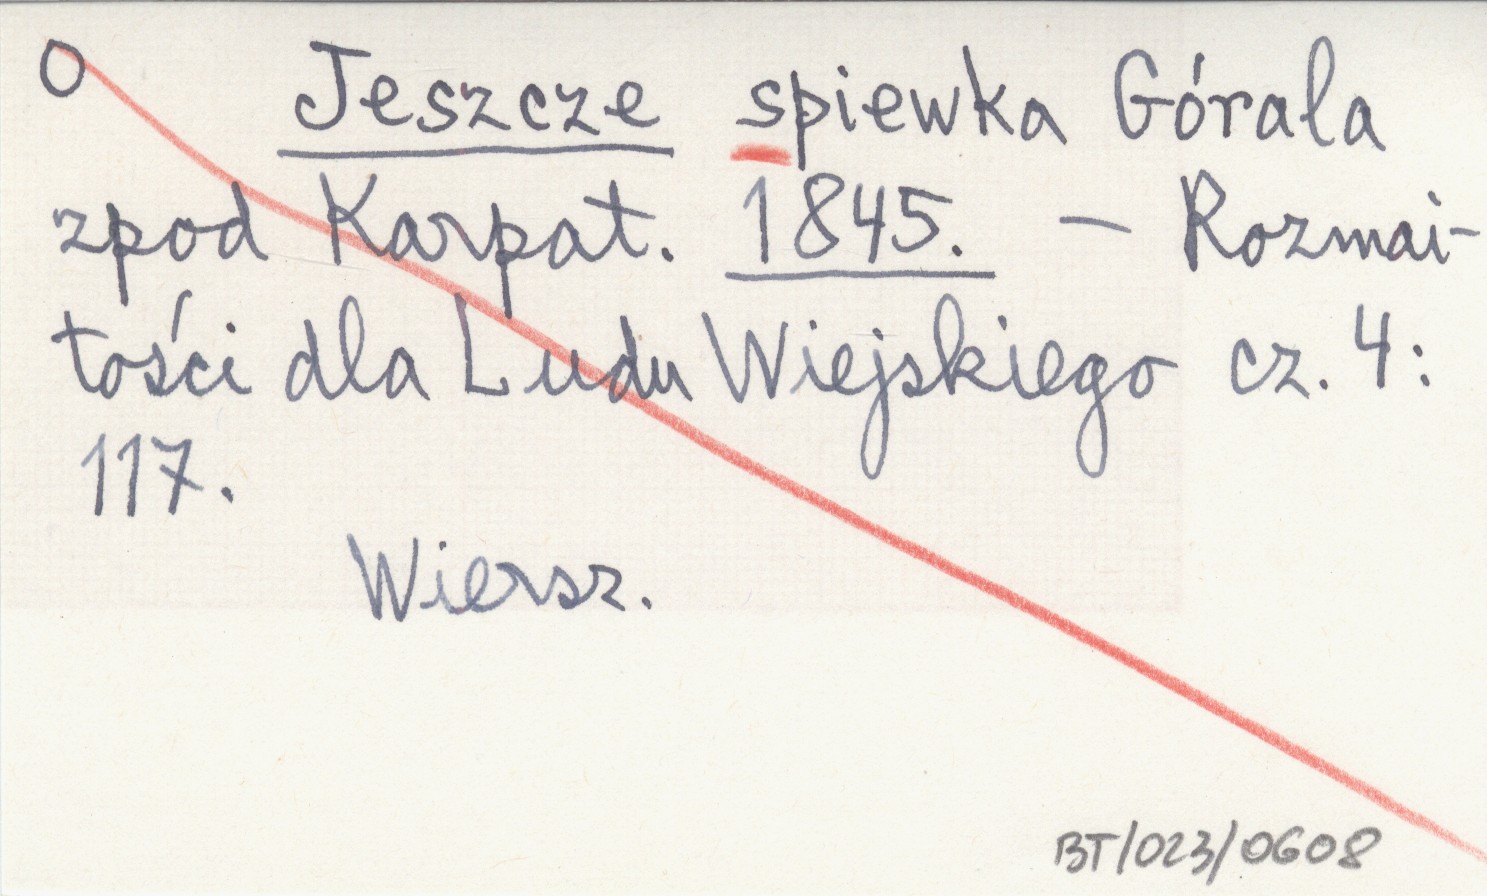 O Jeszcze spiewka Górala
zpod Karpat. 1845. — Rozmai-
tości dla Ludu Wiejskiego cz. 4:
117.
Wiersz.
BT/023/0608